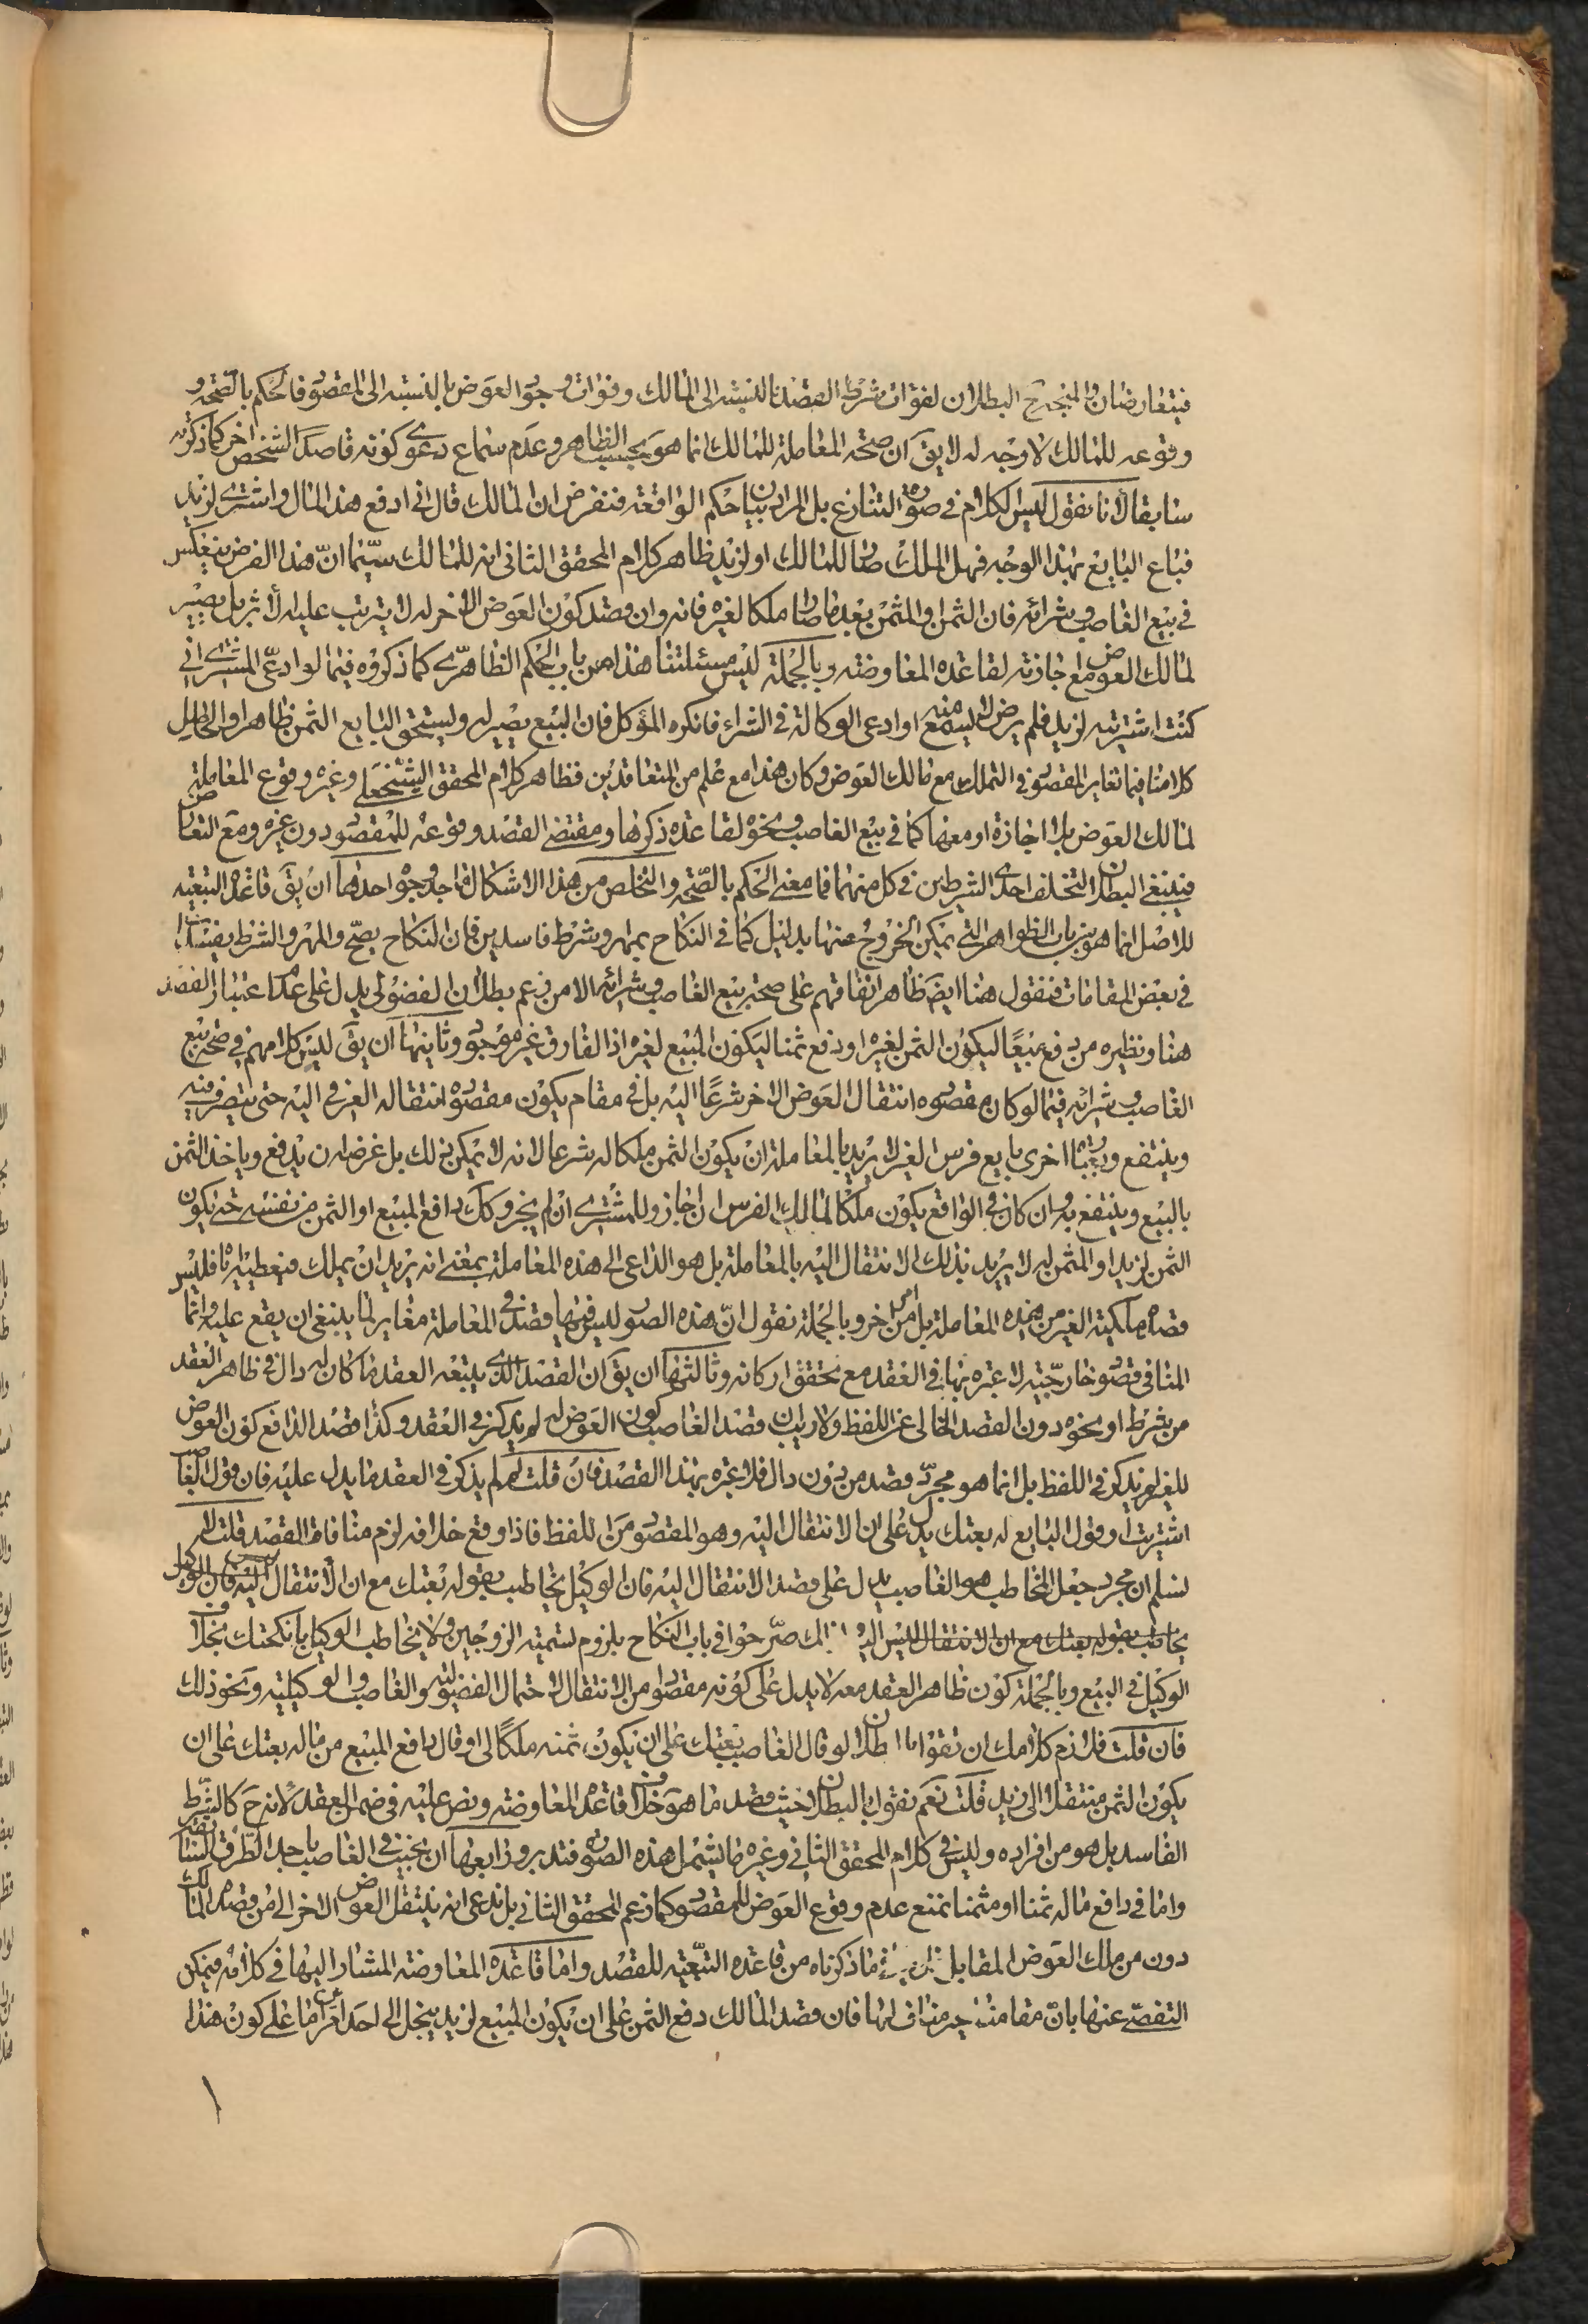 فيتعارضان والمتجه ح البطلان لفوات شرط القصد بالنسبة الى المالك وفوات وجود العوض بالنسبة الى المقصود فالحكم بالصحة و
وقوعه للمالك لا وجه له لا يق ان صحة المعاملة للمالك انما هو بحسب الظاهر وعدم سماع دعوى كونه قاصدا لشخص اخر كما ذكرته
سابقا لانا نقول ليس الكلام في صورة التنازع بل المراد بيان حكم الواقعة فنفرض ان المالك قال اني ادفع هذا المال واشترى لزيد
فباع البايع بهذا الوجه فهل الملك صار للمالك او لزيد ظاهر كلام المحقق الثاني انه للمالك سيّما انّ هذا الفرض ينعكس
في بيع الغاصب وشرائه فان الثمن او المثمن بعد ما صار ملكا لغيره فانه وان قصد كون العوض الاخر له لا يترتب عليه الأثر بل يصير
لمالك العوض مع اجازته لقاعدة المعاوضة وبالجملة ليس مسئلتنا هذا من باب الحكم الظاهرّى كما ذكروه فيما لو ادعّى المشترى انى
كنت اشتريته لزيد فلم يرض لم يسمع منه او ادعى الوكالة في الشراء فانكره المؤكل فان البيع يصير له ويستحق البايع الثمن ظاهرا والحاصل
كلامنا فيما تغاير المقصود في التملك مع مالك العوض وكان هذا مع علم من المتعاقدين فظاهر كلام المحقق الشيخ على وغيره وقوع المعاملة
لمالك العوض بلا اجازة او معها كما في بيع الغاصب ونحوه لقاعدة ذكرها ومقتضى القصد وقوعه للمقصود دون غيره ومع التعارض
فينبغى البطلان لتخلف احدى الشرطين في كل منهما فما معنى الحكم بالصّحة والتخلص من هذا الاشكال باحد وجوه احدها ان يق قاعدة التبعية
للاصل انما هو من باب الظواهر التى يمكن الخروج عنها بدليل كما في النكاح بمهر وشرط فاسدين فان النكاح يصحّ والمهر والشرط يفسدان
في بعض المقامات فنقول هنا ايضَ ظاهر اتفاقهم على صحة بيع الغاصب وشرائه الا من زعم بطلان الفضولى يدل على عدم اعتبار القصد
هنا ونظيره من دفع مبيعًا ليكون الثمن لغيره او دفع ثمنا ليكون المبيع لغيره اذ الفارق غير موجود وثانيها ان يق ليس كلامهم في صحة بيع
الغاصب وشرائه فيما لو كان مقصوده انتقال العوض الاخر شرعًا اليه بل في مقام يكون مقصوده انتقاله العرفى اليه حتى يتصرف فيه
وينتفع وبعبارة اخرى بايع فرس الغير لا يريد بالمعاملة ان يكون الثمن ملكا له شرعا لانه لا يمكن ذلك بل غرضه ان يدفع وياخذ الثمن
بالبيع وينتفع به وان كان في الواقع يكون ملكا لمالك الفرس ان اجاز وللمشترى ان لم يجز وكك دافع المبيع او الثمن من نفسه حتى يكون
الثمن لزيد او المثمن له لا يريد بذلك الانتقال اليه بالمعاملة بل هو الداعى الى هذه المعاملة بمعنى انه يريد ان يملك فيعطيه اياه فليس
قصده ملكية الغير من هذه المعاملة بل من امر اخر وبالجملة نقول انّ هذه الصور ليس فيها قصد في المعاملة مغاير لما ينبغى ان يقع عليه وانما
المنافى قصود خارجّية لا عبرة بها في العقد مع تحقق اركانه وثالثها ان يق ان القصد الذى يتبعه العقد ما كان له دال في ظاهر العقد
من شرط او نحوه دون القصد الخالى عن اللفظ ولا ريب ان قصد الغاصب كون العوض له لم يذكر في العقد وكذا قصد الدافع كون العوض
للغير لم يذكر في اللفظ بل انما هو مجرّد قصد من دون دال فلا عبرة بهذا القصد فان قلت كيف لم يذكر في العقد ما يدل عليه فان قول الغاصب
اشتريت او قول البايع له بعتك يدل على ان الانتقال اليه وهو المقصود من اللفظ فاذا وقع خلافه لزم منافاة القصد قلت لا
نسلم ان مجرد جعل المخاطب هو الغاصب يدل على قصد الانتقال اليه فان الوكيل يخاطب بقوله بعتك مع ان الانتقال ليس اليه فان الوكيل
يخاطب بقوله بعتك مع ان الانتقال ليس اليه ولذلك صرّحوا في باب النكاح بلزوم تسمية الزوجين ولا يخاطب الوكيل بانكحتك بخلاف
الوكيل في البيع وبالجملة كون ظاهر العقد معه لا يدل على كونه مقصودا من الانتقال لاحتمال الفضولية والغاصب والوكيلية ونحو ذلك
فان قلت فلازم كلامك ان تقول بالبطلان لو قال الغاصب بعتك على ان يكون ثمنه ملكًا لى او قال دافع المبيع من ماله بعتك على ان
يكون الثمن منتقلا الى زيد قلت نعم نقول بالبطلان حيث قصد ما هو خلاف قاعدة المعاوضة ونص عليه في ضمن العقد لانه ح كالشرط
الفاسد بل هو من افراده وليس في كلام المحقق الثاني وغيره ما يشمل هذه الصورة فتدبر ورابعها ان نجيب في الغاصب باحد الطرق السابقة
واما في دافع ماله ثمنا او مثمنا نمنع عدم وقوع العوض للمقصود كما زعم المحقق الثاني بل ندعى انه ينتقل العوض الاخر الى من قصده المالك
دون من ملك العوض المقابل ما ذكرناه من قاعدة التبّعية للقصد واما قاعدة المعاوضة المشار اليها في كلامه فيمكن
التفصّى عنها بانّ مقامنا غير مناف لها فان قصد المالك دفع الثمن على ان يكون المبيع لزيد ينحل الى احد امرين اما على كون هذا